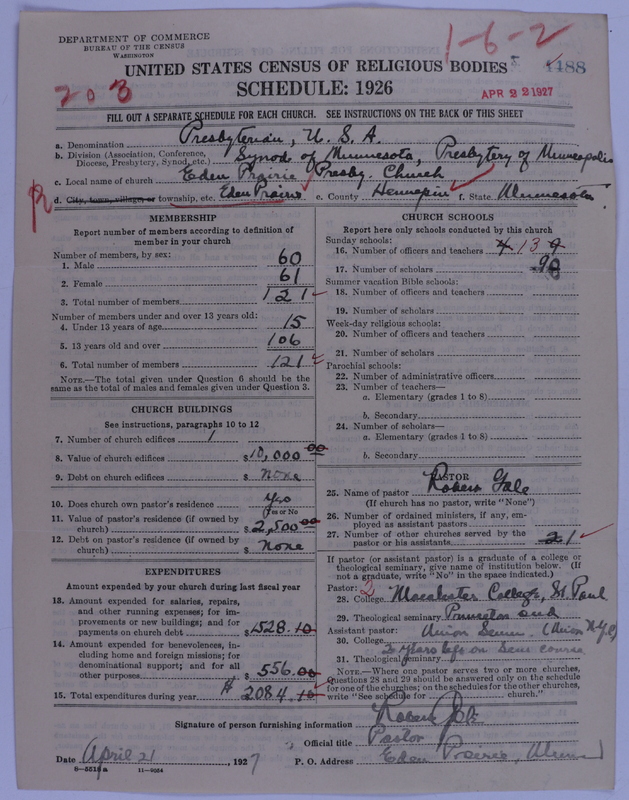 DEPARTMENT OF COMMERCE
BUREAU OF THE CENSUS
WASHINGTON
1-6-2
UNITED STATES CENSUS OF RELIGIOUS BODIES
488
203
SCHEDULE: 1926
APR 22 1927
FILL OUT A SEPARATE SCHEDULE FOR EACH CHURCH. SEE INSTRUCTIONS ON THE BACK OF THIS SHEET
a. Denomination Presbyterian, U. S. A.
b. Division (Association, Conference, Diocese, Presbytery, Synod, etc.) Synod of Minnesota, Presbytery of Minneapolis
c. Local name of church Eden Prairie Presby. Church
d. City, town, village, or township, etc. Eden Prairie e. County Hennepin f. State Minnesota
MEMBERSHIP
Report number of members according to definition of
member in your church
Number of members, by sex:
1. Male 60
2. Female 61
3. Total number of members 121
Number of members under and over 13 years old:
4. Under 13 years of age 15
5. 13 years old and over 106
6. Total number of members 121
NOTE.—The total given under Question 6 should be the
same as the total of males and females given under Question 3.
CHURCH BUILDINGS
See instructions, paragraphs 10 to 12
7. Number of church edifices 1
8. Value of church edifices $10,000 00
9. Debt on church edifices $ None
10. Does church own pastor's residence Yes
Yes or No
11. Value of pastor's residence (if owned by
church) $2,500 00
12. Debt on pastor's residence (if owned by
church) $ None
EXPENDITURES
Amount expended by your church during last fiscal year
13. Amount expended for salaries, repairs,
and other running expenses; for im-
provements or new buildings; and for
payments on church debt $1528.10
14. Amount expended for benevolences, in-
cluding home and foreign missions; for
denominational support; and for all
other purposes $556.00
15. Total expenditures during year $2084.10
CHURCH SCHOOLS
Report here only schools conducted by this church
Sunday schools:
16. Number of officers and teachers 4 13 9
17. Number of scholars 98
Summer vacation Bible schools:
18. Number of officers and teachers
19. Number of scholars
Week-day religious schools:
20. Number of officers and teachers
21. Number of scholars
Parochial schools:
22. Number of administrative officers
23. Number of teachers—
a. Elementary (grades 1 to 8)
b. Secondary
24. Number of scholars—
a. Elementary (grades 1 to 8)
b. Secondary
PASTOR
25. Name of pastor Robert Gale
(If church has no pastor, write "None")
26. Number of ordained ministers, if any, em-
ployed as assistant pastors
27. Number of other churches served by the
pastor or his assistants 2 1
If pastor (or assistant pastor) is a graduate of a college or
theological seminary, give name of institution below. (If
not a graduate, write "No" in the space indicated.)
Pastor: 2
28. College Macalester College, St. Paul
29. Theological seminary Princeton and
Assistant pastor: Union Semin. (Union N.Y.)
30. College
31. Theological seminary
NOTE.—Where one pastor serves two or more churches,
Questions 28 and 29 should be answered only on the schedule
for one of the churches; on the schedules for the other churches,
write "See schedule for church."
Signature of person furnishing information Robert Gale
Official title Pastor
Date April 21, 1927 P. O. Address Eden Prairie, Minn
8—5518a 11—9054